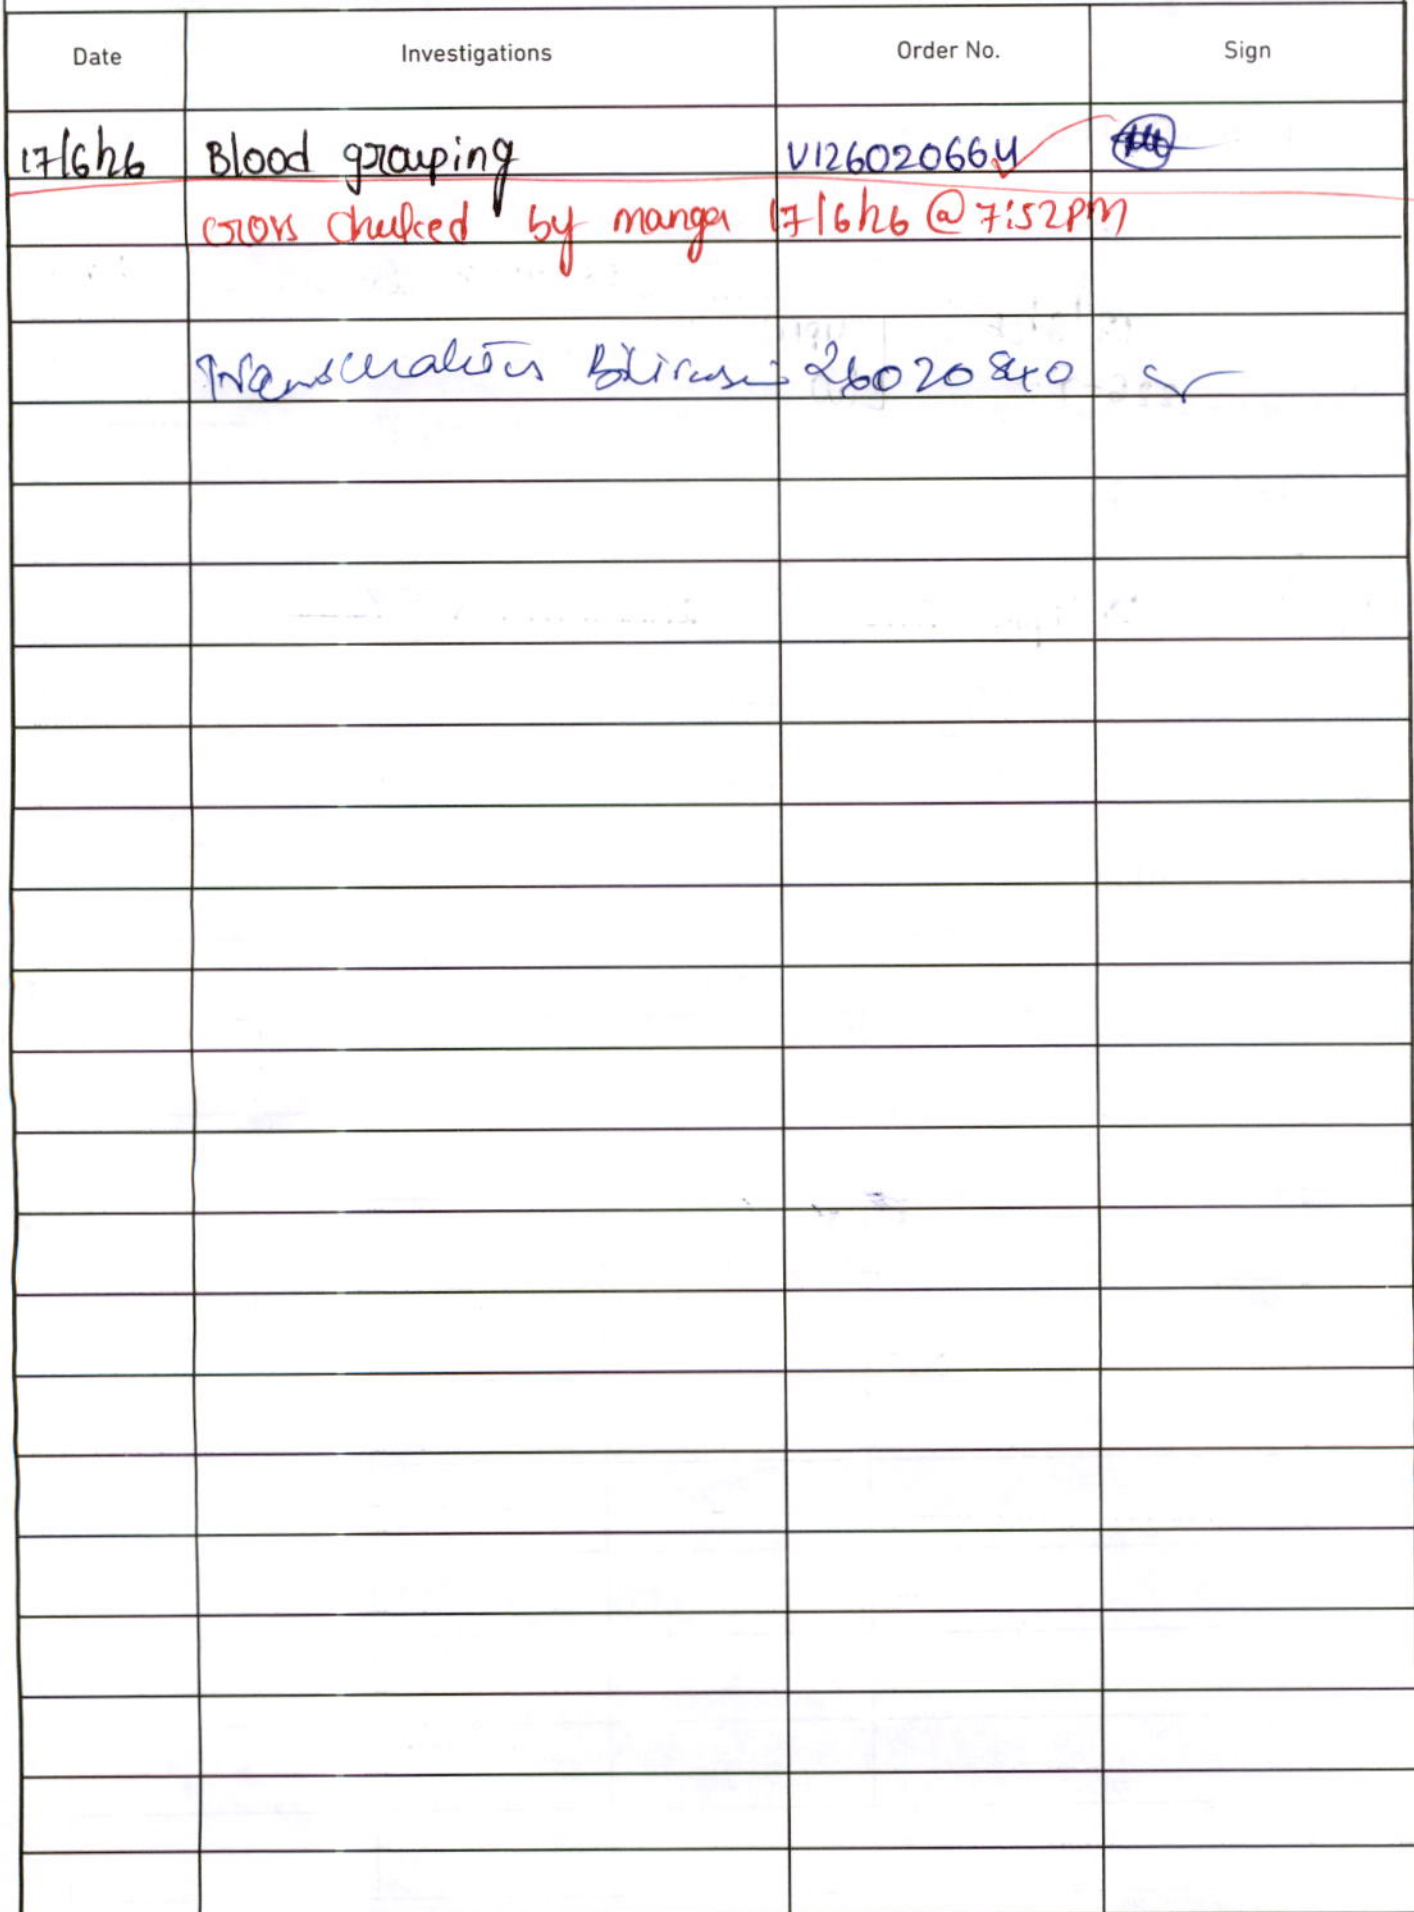 Date Investigations Order No. Sign
17/6/26 Blood grouping VI26020664
cross checked by manga 17/6/26 @ 7:52PM
26020840